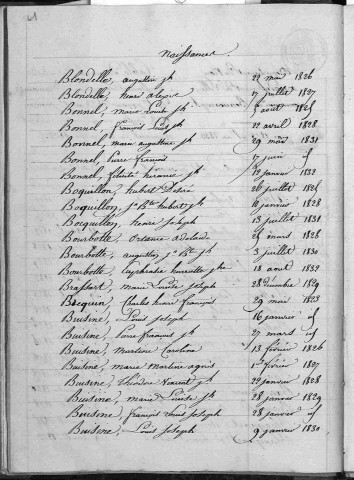 Naissances
Blondelle, augustin jh 22 mai 1826
Blondelle, henri alexse 17 juillet 1827
Bonnel, marie Louise jh 3 août 1825
Bonnel, françois Louis jh 22 avril 1828
Bonnel, marie augustine jh 29 mai 1831
Bonnel, Pierre françois 17 juin id
Bonnel, félicité 12 janvier 1832
Boquillon, hubert 26 juillet 1825
Boquillon, jn Bte hubert jh 16 janvier 1828
Boquillon, henri Joseph 13 juillet 1831
Bourbotte, ortance adelaide 25 mars 1828
Bourbotte, augustin jn Bte jh 3 juillet 1830
Bourbotte, Euphrasie henriette jhe 18 aout 1832
Brassart, marie Louise Joseph 28 décembre 1829
Becquin, Charles henri françois 29 mai 1823
Buisine, Louis Joseph 16 janvier id
Buisine, Pierre françois jh 27 mars id
Buisine, Martine Caroline 13 février 1826
Buisine, marie martine agnès 1er février 1827
Buisine, théodore Vincent jh 22 janvier 1828
Buisine, marie Louise jh 28 janvier 1829
Buisine, françois Louis Joseph 28 janvier id
Buisine, Louis Joseph 9 janvier 1830